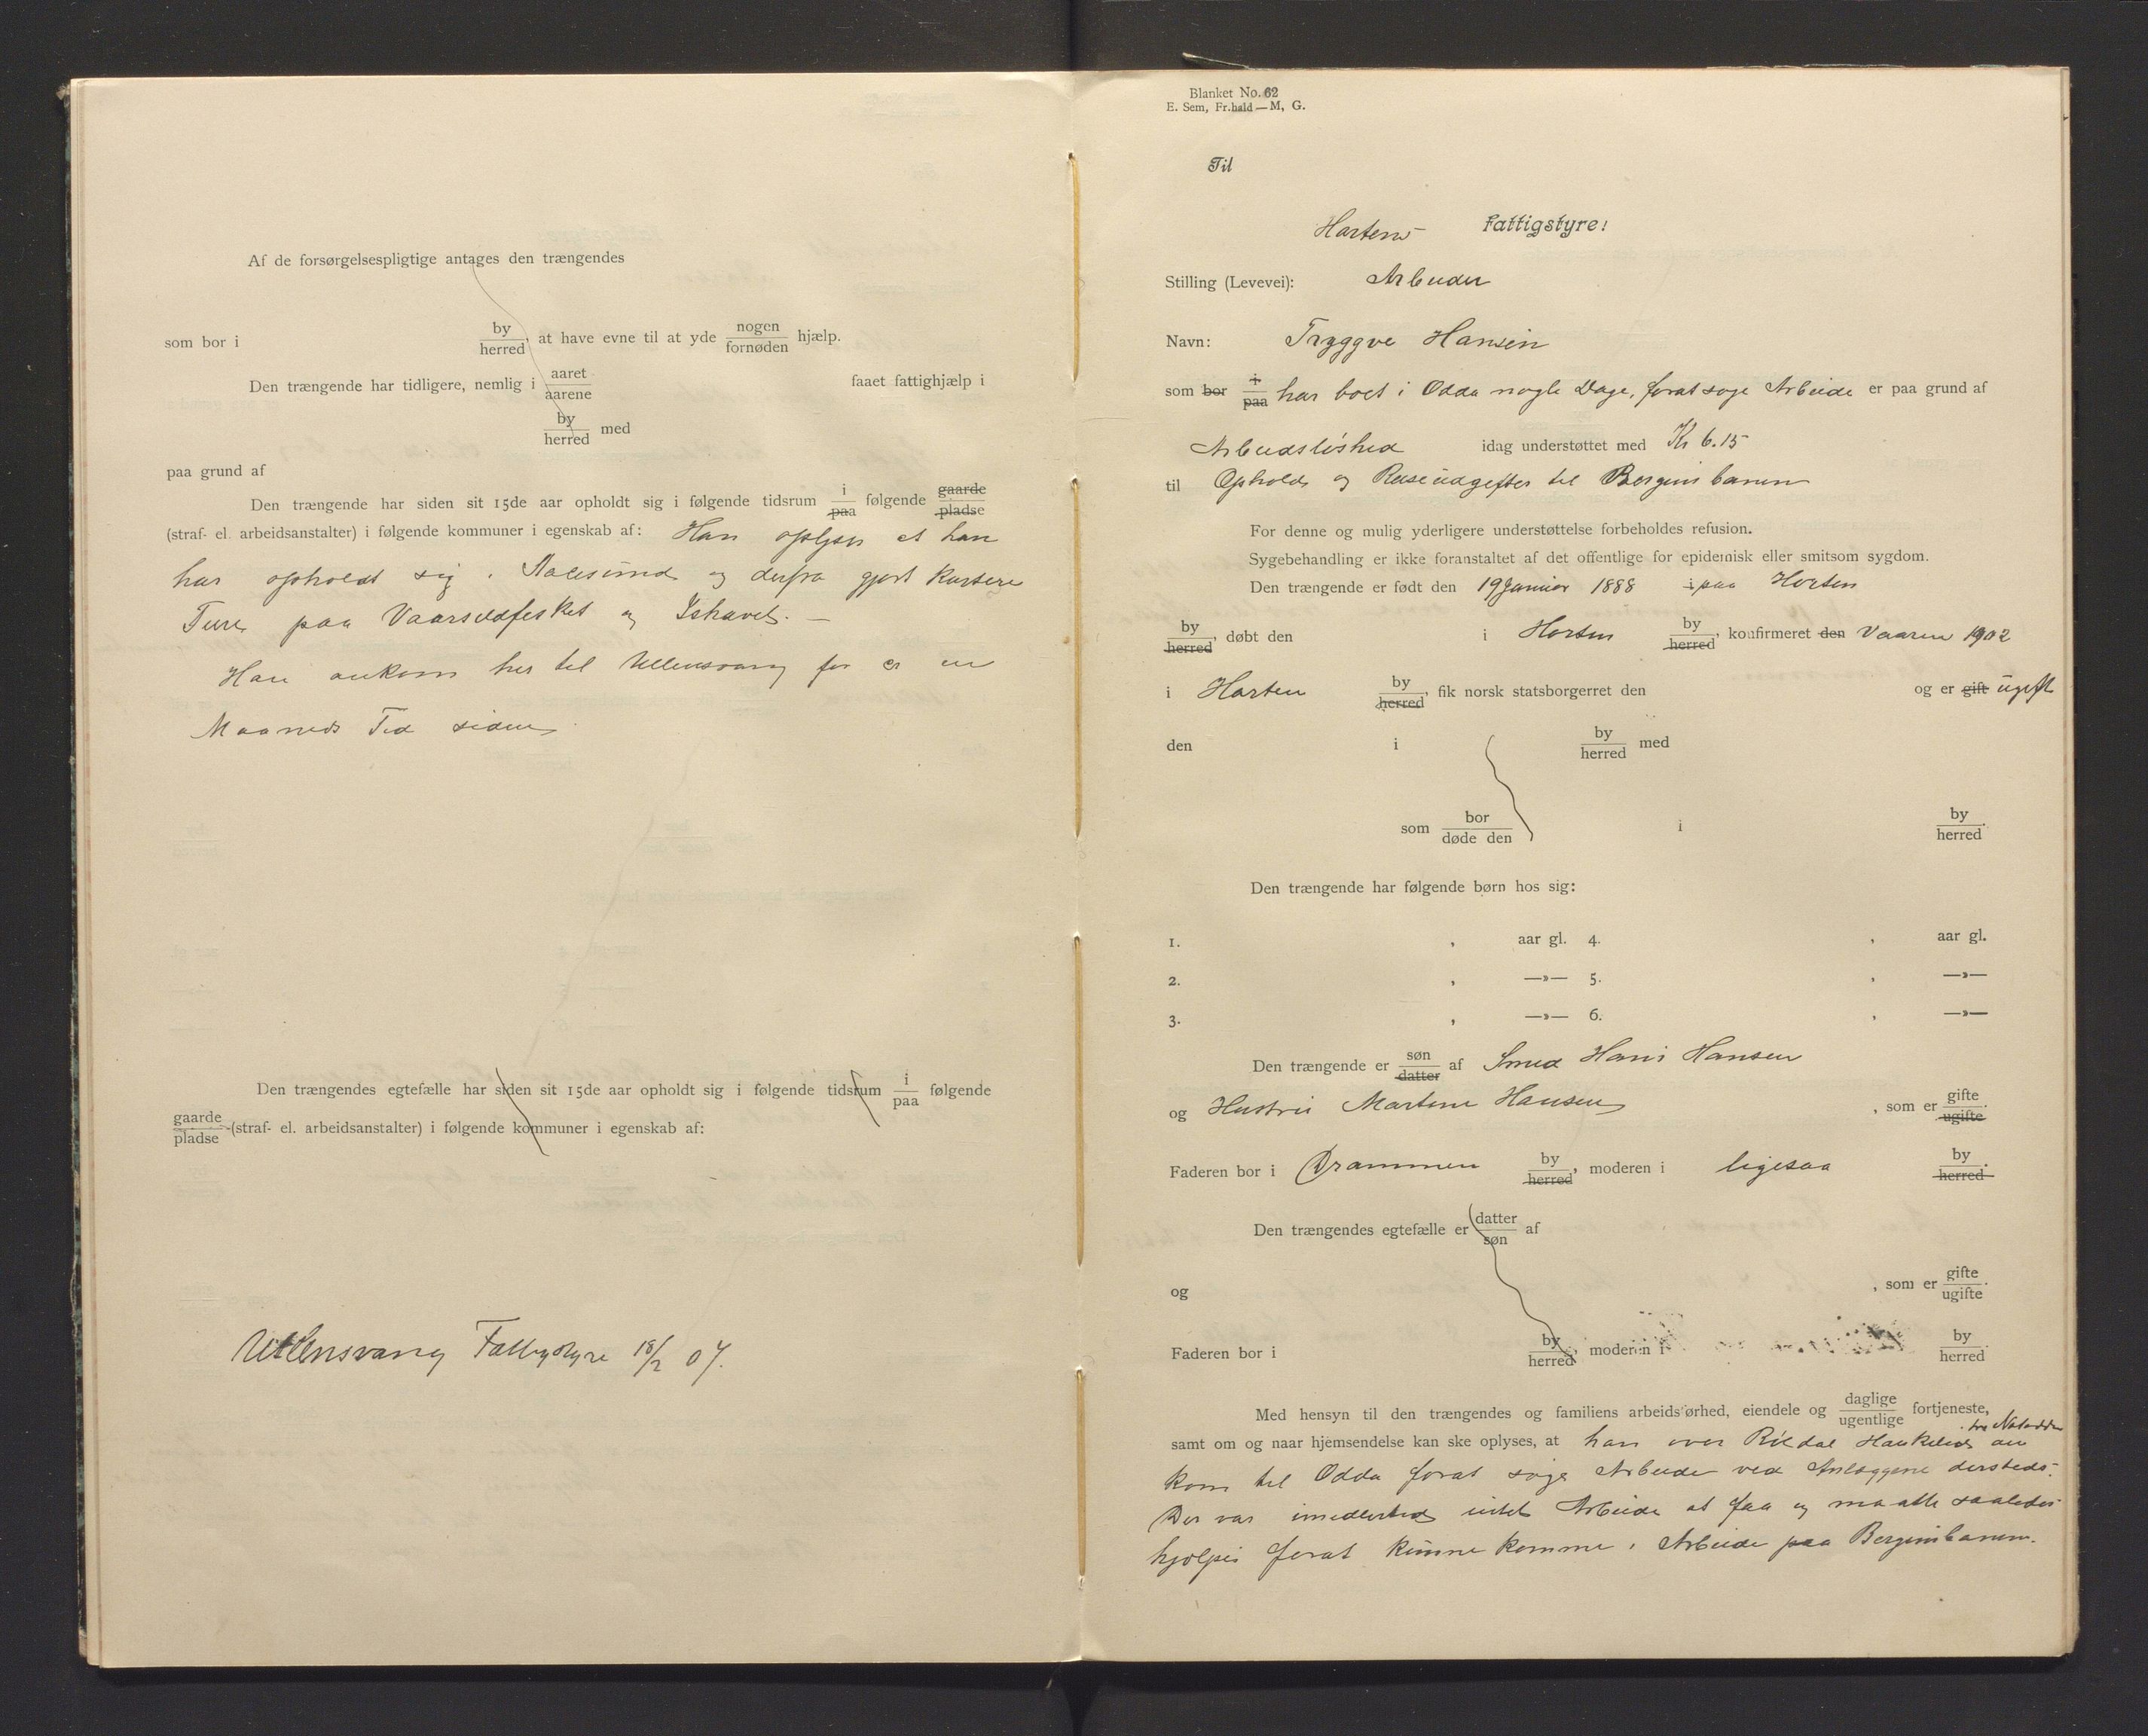 Af de forsørgelsespligtige antages den trængendes
som bor i by/herred, at have evne til at yde nogen/fornøden hjælp.
Den trængende har tidligere, nemlig i aaret/aarene faaet fattighjælp i
by/herred med
paa grund af
Den trængende har siden sit 15de aar opholdt sig i følgende tidsrum i/paa følgende gaarde/pladse
(straf- el. arbeidsanstalter) i følgende kommuner i egenskab af: Han oplyser at han
har opholdt sig i Aalesund og derfra gjort kortere
Ture paa Vaarsildfisket og Ishavet. —
Han ankom her til Ullensvang for er en
Maaneds Tid siden
Den trængendes egtefælle har siden sit 15de aar opholdt sig i følgende tidsrum i/paa følgende
gaarde/pladse (straf- el. arbeidsanstalter) i følgende kommuner i egenskab af:
Ullensvang Fattigstyre 18/2 07.
Blanket No. 62
E. Sem, Fr.hald — M, G.
Til
Hortens Fattigstyre!
Stilling (Levevei): Arbeider
Navn: Tryggve Hansen
som bor i/paa har boet i Odda nogle Dage, forat søge Arbeide er paa grund af
Arbeidsløshed idag understøttet med Kr 6.15
til Ophold og Reiseudgifter til Bergensbanen
For denne og mulig yderligere understøttelse forbeholdes refusion.
Sygebehandling er ikke foranstaltet af det offentlige for epidemisk eller smitsom sygdom.
Den trængende er født den 19 Januar 1888 i paa Horten
by/herred, døbt den i Horten by/herred, konfirmeret den Vaaren 1902
i Horten by/herred, fik norsk statsborgerret den og er gift ugift
den i by/herred med
som bor/døde den i by/herred.
Den trængende har følgende børn hos sig:
1. , aar gl. 4. , aar gl.
2. , —»— 5. , —»—
3. , —»— 6. , —»—
Den trængende er søn/datter af Smed Hans Hansen
og Hustru Martine Hansen , som er gifte/ugifte.
Faderen bor i Drammen by/herred, moderen i ligesaa by/herred.
Den trængendes egtefælle er datter/søn af
og , som er gifte/ugifte.
Faderen bor i by/herred, moderen i by/herred.
Med hensyn til den trængendes og familiens arbeidsførhed, eiendele og daglige/ugentlige fortjeneste,
fra Notodden
samt om og naar hjemsendelse kan ske oplyses, at han over Røldal Haukelid an
kom til Odda forat søge Arbeide ved Anlæggene dersteds.
Der var imedlertid intet Arbeide at faa og maatte saaledes
hjælpes forat kunne komme i Arbeide paa Bergensbanen.